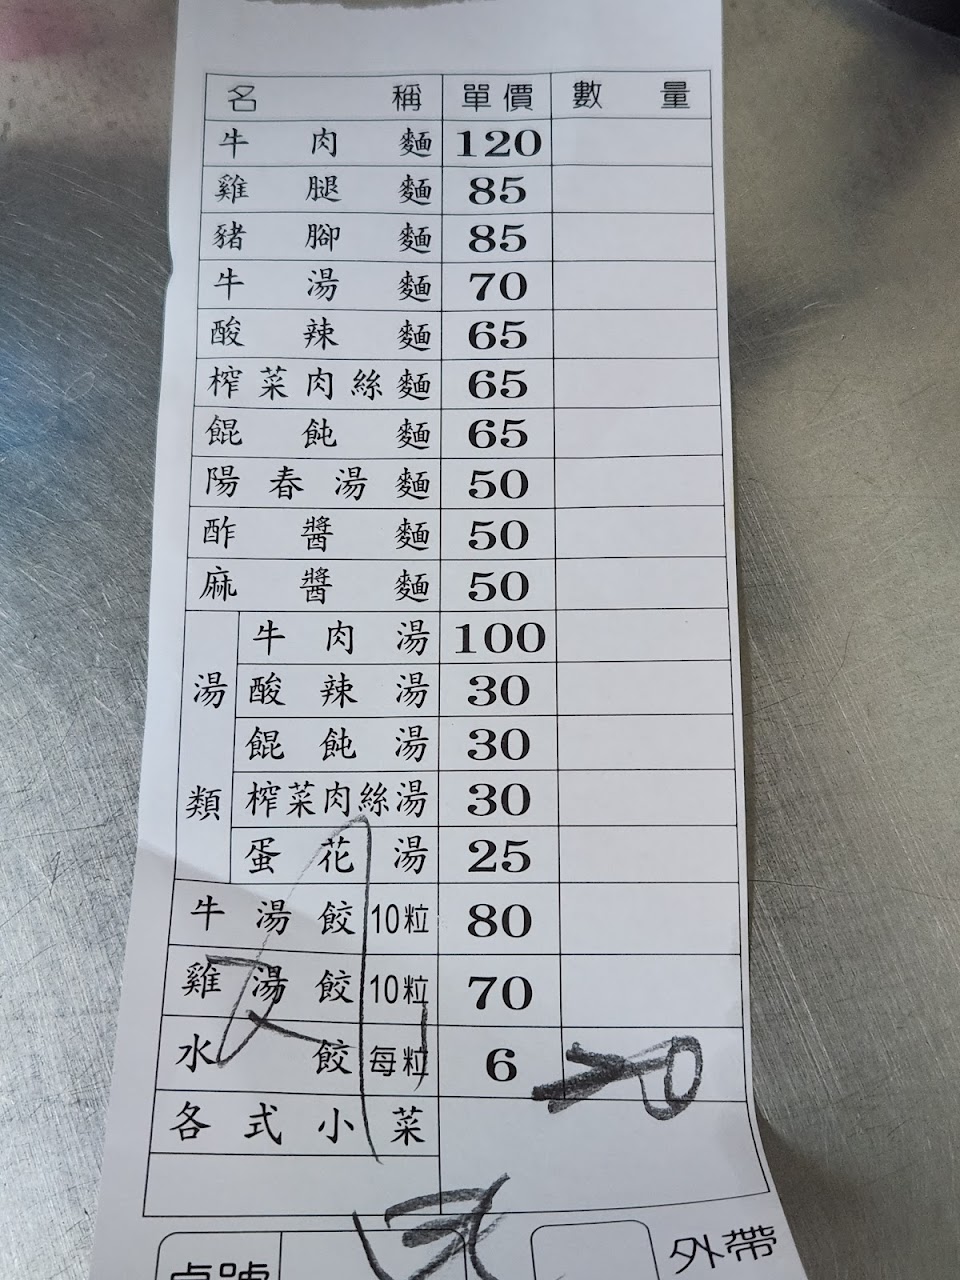 名稱 單價 數量
牛肉麵 120
雞腿麵 85
豬腳麵 85
牛湯麵 70
酸辣麵 65
榨菜肉絲麵 65
餛飩麵 65
陽春湯麵 50
酢醬麵 50
麻醬麵 50
湯類
牛肉湯 100
酸辣湯 30
餛飩湯 30
榨菜肉絲湯 30
蛋花湯 25
牛湯餃 10粒 80
雞湯餃 10粒 70
水餃 每粒 6 20
各式小菜
桌號 外帶